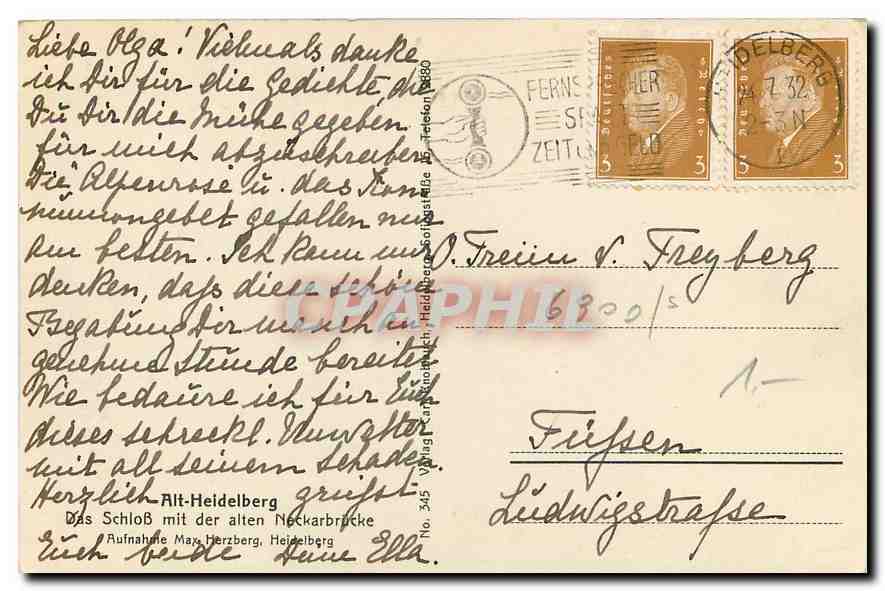 Liebe Olga! Vielmals danke
ich Dir für die Gedichte, die
Du Dir die Mühe gegeben
für mich abzuschreiben.
Die "Alpenrose" u. das Kom
muniongebet gefallen mir
am besten. Ich kann mir
denken, daß diese schöne
Begabung Dir manch an
genehme Stunde bereitet
Wie bedaure ich für Euch
dieses schreckl. Unwetter
mit all seinem Schaden.
Herzlich grüßt
Alt-Heidelberg
Das Schloß mit der alten Neckarbrücke
Aufnahme Max Herzberg, Heidelberg
Euch beide Deine Ella.
No. 345 Verlag: Carl Knobloch, Heidelberg, Sofienstraße 15, Telefon
FERNSPRECHER
SPART
ZEIT u. GELD
Deutsches Reich
3
Deutsches Reich
3
HEIDELBERG
7.32
-3 N
O. Freiin v. Freyberg
6300/s
1.-
Füssen
Ludwigstraße
CPAPHIL